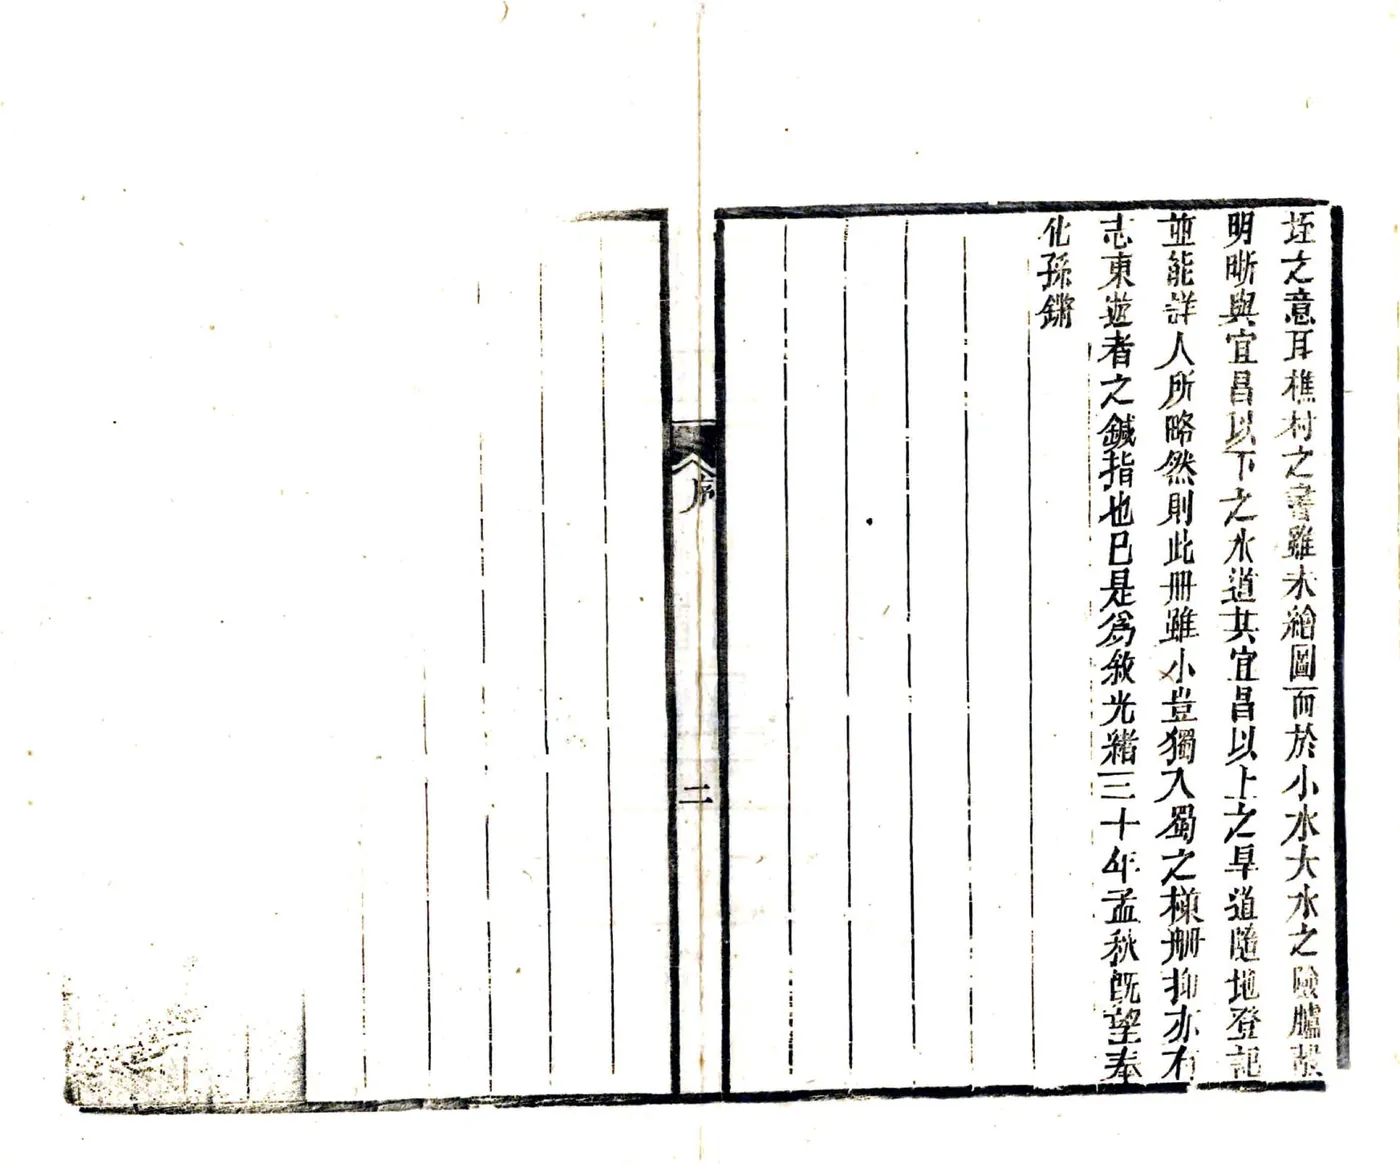 垤之意耳樵村之書雖未繪圖而於小水大水之險臚
明晰與宜昌以下之水道其宜昌以上之旱道隨地登記
並能詳人所略然則此冊雖小豈獨入蜀之樣冊抑亦有
志東遊者之鍼指也已是爲敘光緒三十年孟秋既望奉
化孫鏘
序
二